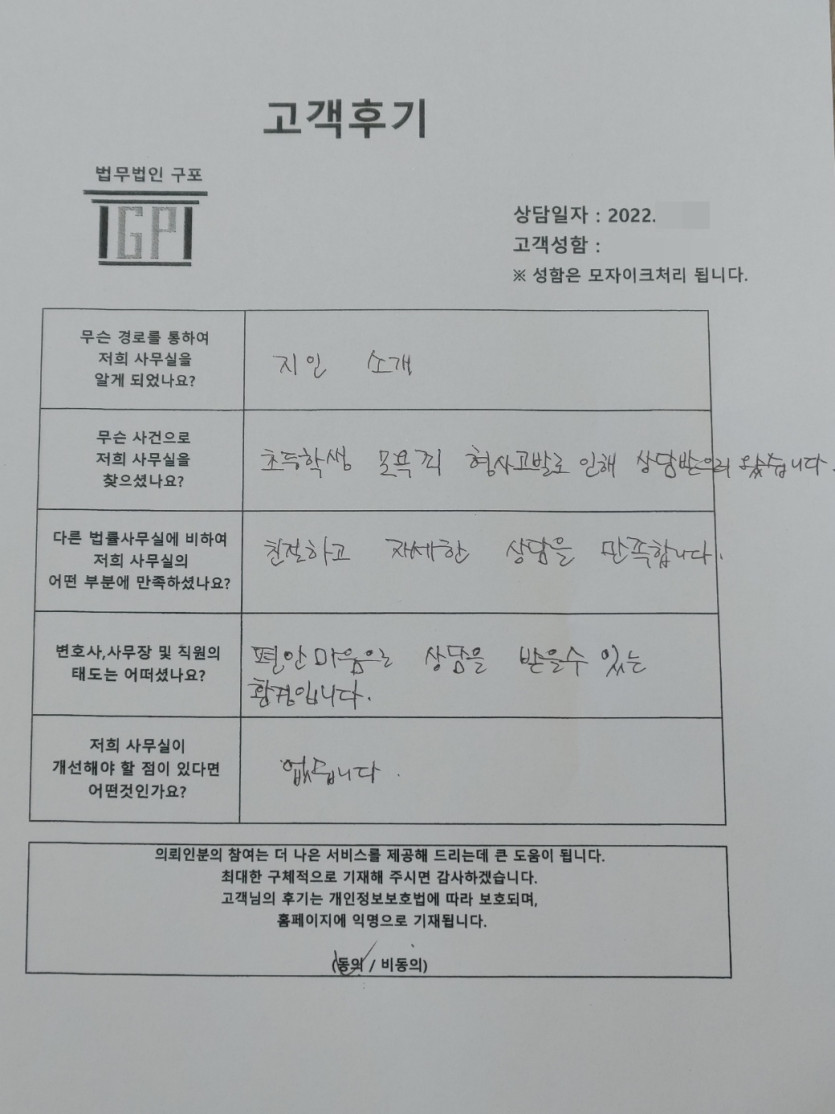 고객후기
법무법인 구포
GP
상담일자 : 2022.
고객성함 :
※ 성함은 모자이크처리 됩니다.
무슨 경로를 통하여
저희 사무실을
알게 되었나요?
지인 소개
무슨 사건으로
저희 사무실을
찾으셨나요?
초등학생 모욕죄 형사고발로 인해 상담받으러 왔습니다.
다른 법률사무실에 비하여
저희 사무실의
어떤 부분에 만족하셨나요?
친절하고 자세한 상담을 만족합니다.
변호사,사무장 및 직원의
태도는 어떠셨나요?
편안 마음으로 상담을 받을수 있는
환경입니다.
저희 사무실이
개선해야 할 점이 있다면
어떤것인가요?
없습니다.
의뢰인분의 참여는 더 나은 서비스를 제공해 드리는데 큰 도움이 됩니다.
최대한 구체적으로 기재해 주시면 감사하겠습니다.
고객님의 후기는 개인정보보호법에 따라 보호되며,
홈페이지에 익명으로 기재됩니다.
(동의 / 비동의)